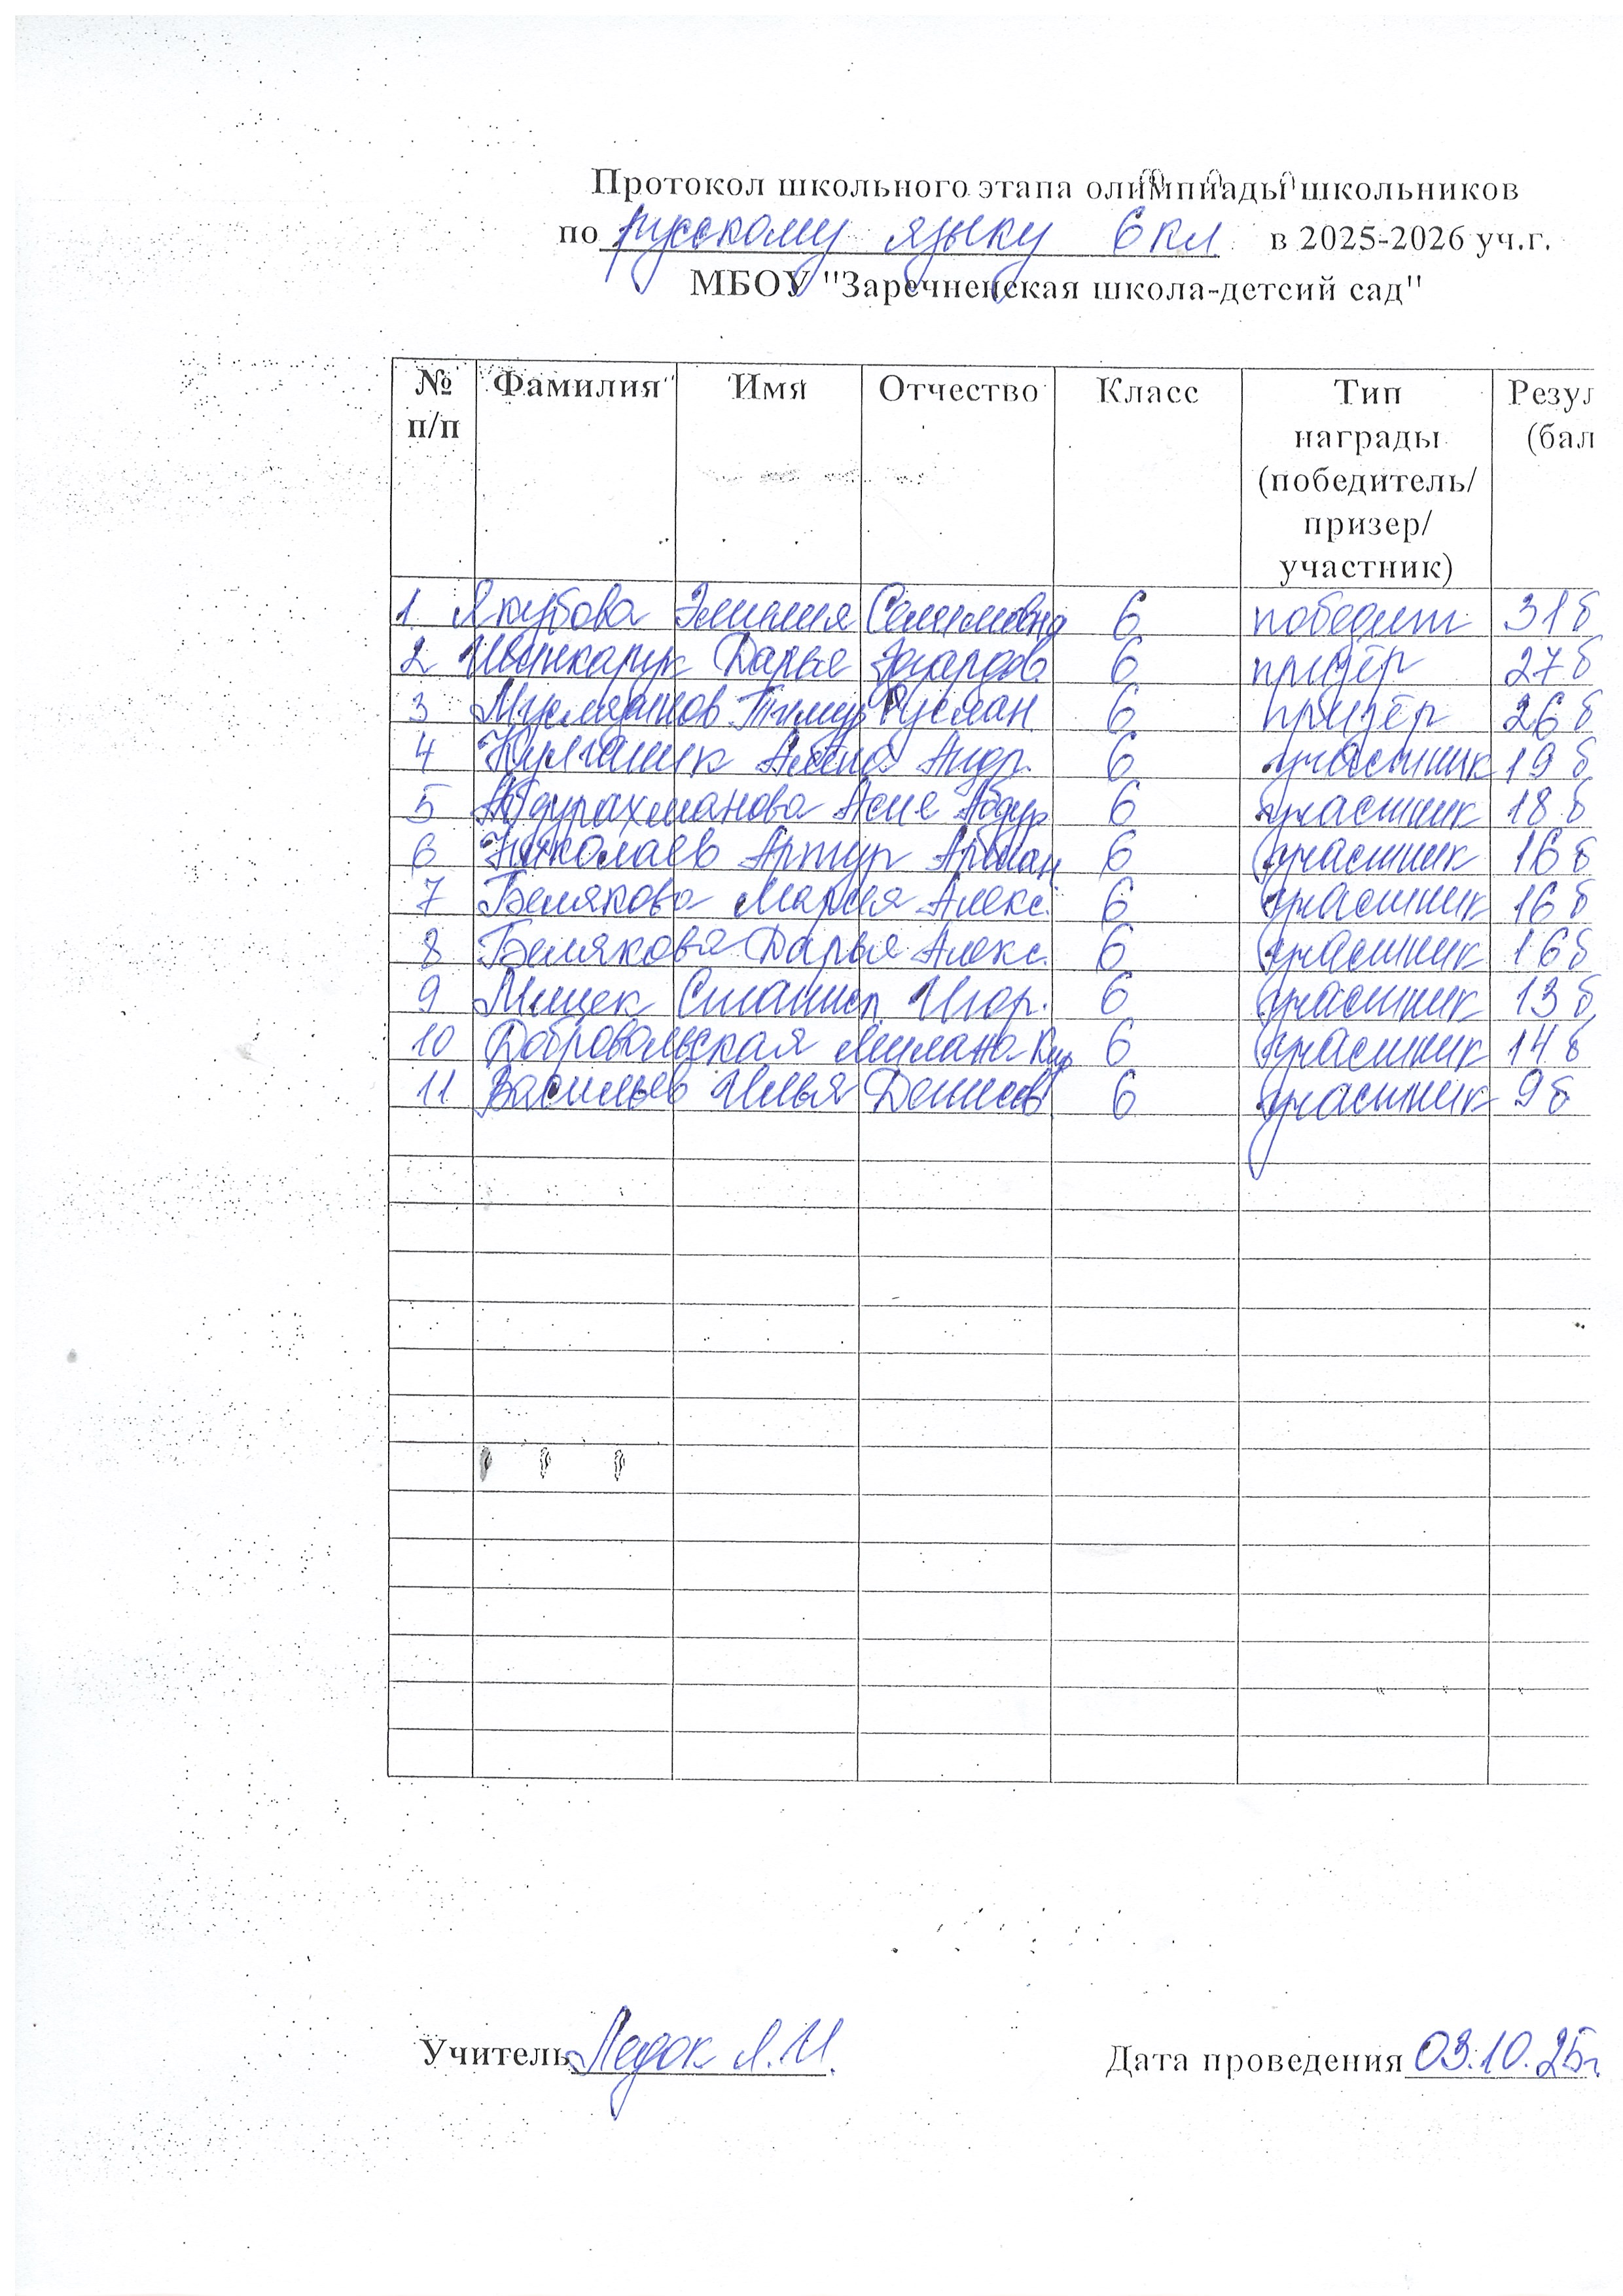 Протокол школьного этапа олимпиады школьников
по русскому языку 6 кл в 2025-2026 уч.г.
МБОУ "Заречненская школа-детсий сад"
№ п/п Фамилия Имя Отчество Класс Тип награды (победитель/ призер/ участник) Резул (бал
1 Якубова Эмилия Селимовна 6 победит 31 б
2 Дарья Эдуардов. 6 призёр 27 б
3 Тимур Руслан. 6 призёр 26 б
4 Андр. 6 участник 19 б
5 Абдурахманова Асие Абдур 6 участник 18 б
6 Николаев Артур 6 участник 16 б
7 Белякова Мария Алекс. 6 участник 16 б
8 Белякова Дарья Алекс. 6 участник 16 б
9 Мицек Станисл. Игор. 6 участник 13 б
10 Добровольская Милана Кир 6 участник 14 б
11 Васильев Илья Денисов 6 участник 9 б
Учитель Ледок Л.И. Дата проведения 03.10.25г.